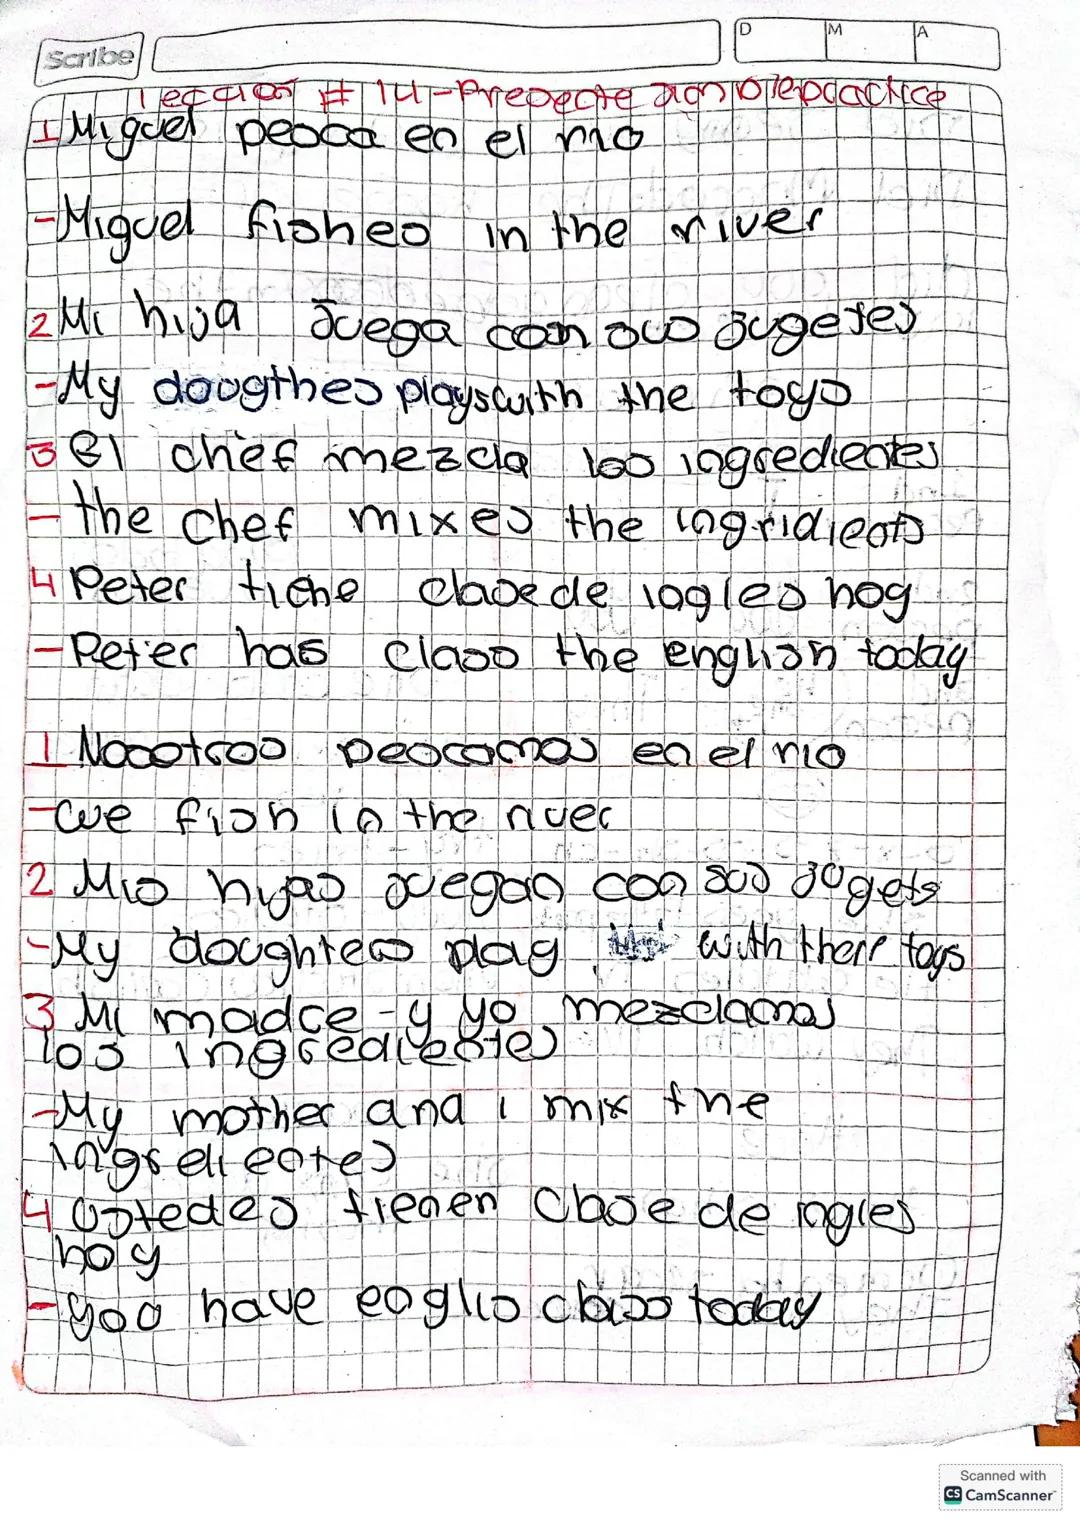 Scribe
D M A
Leccion # 14-Precente simple practice
1 Miguel pesca en el rio
-Miguel fishes in the river
2 Mi hija Juega con sus jugetes
-My dougthes plays with the toys
3 El chef mezcla los ingredientes
-the chef mixes the ingridients
4 Peter tiene clase de ingles hoy
-Peter has class the english today
1 Nosotros pescamos en el rio
-we fish in the river
2 Mis hijas juegan con sus jugets
-My doughters play with their toys
3 Mi madre y yo mezclamos
los ingredientes
-My mother and i mix the
ingredientes
4 Ustedes tienen clase de ingles
hoy
-you have englis class today
Scanned with
CS CamScanner